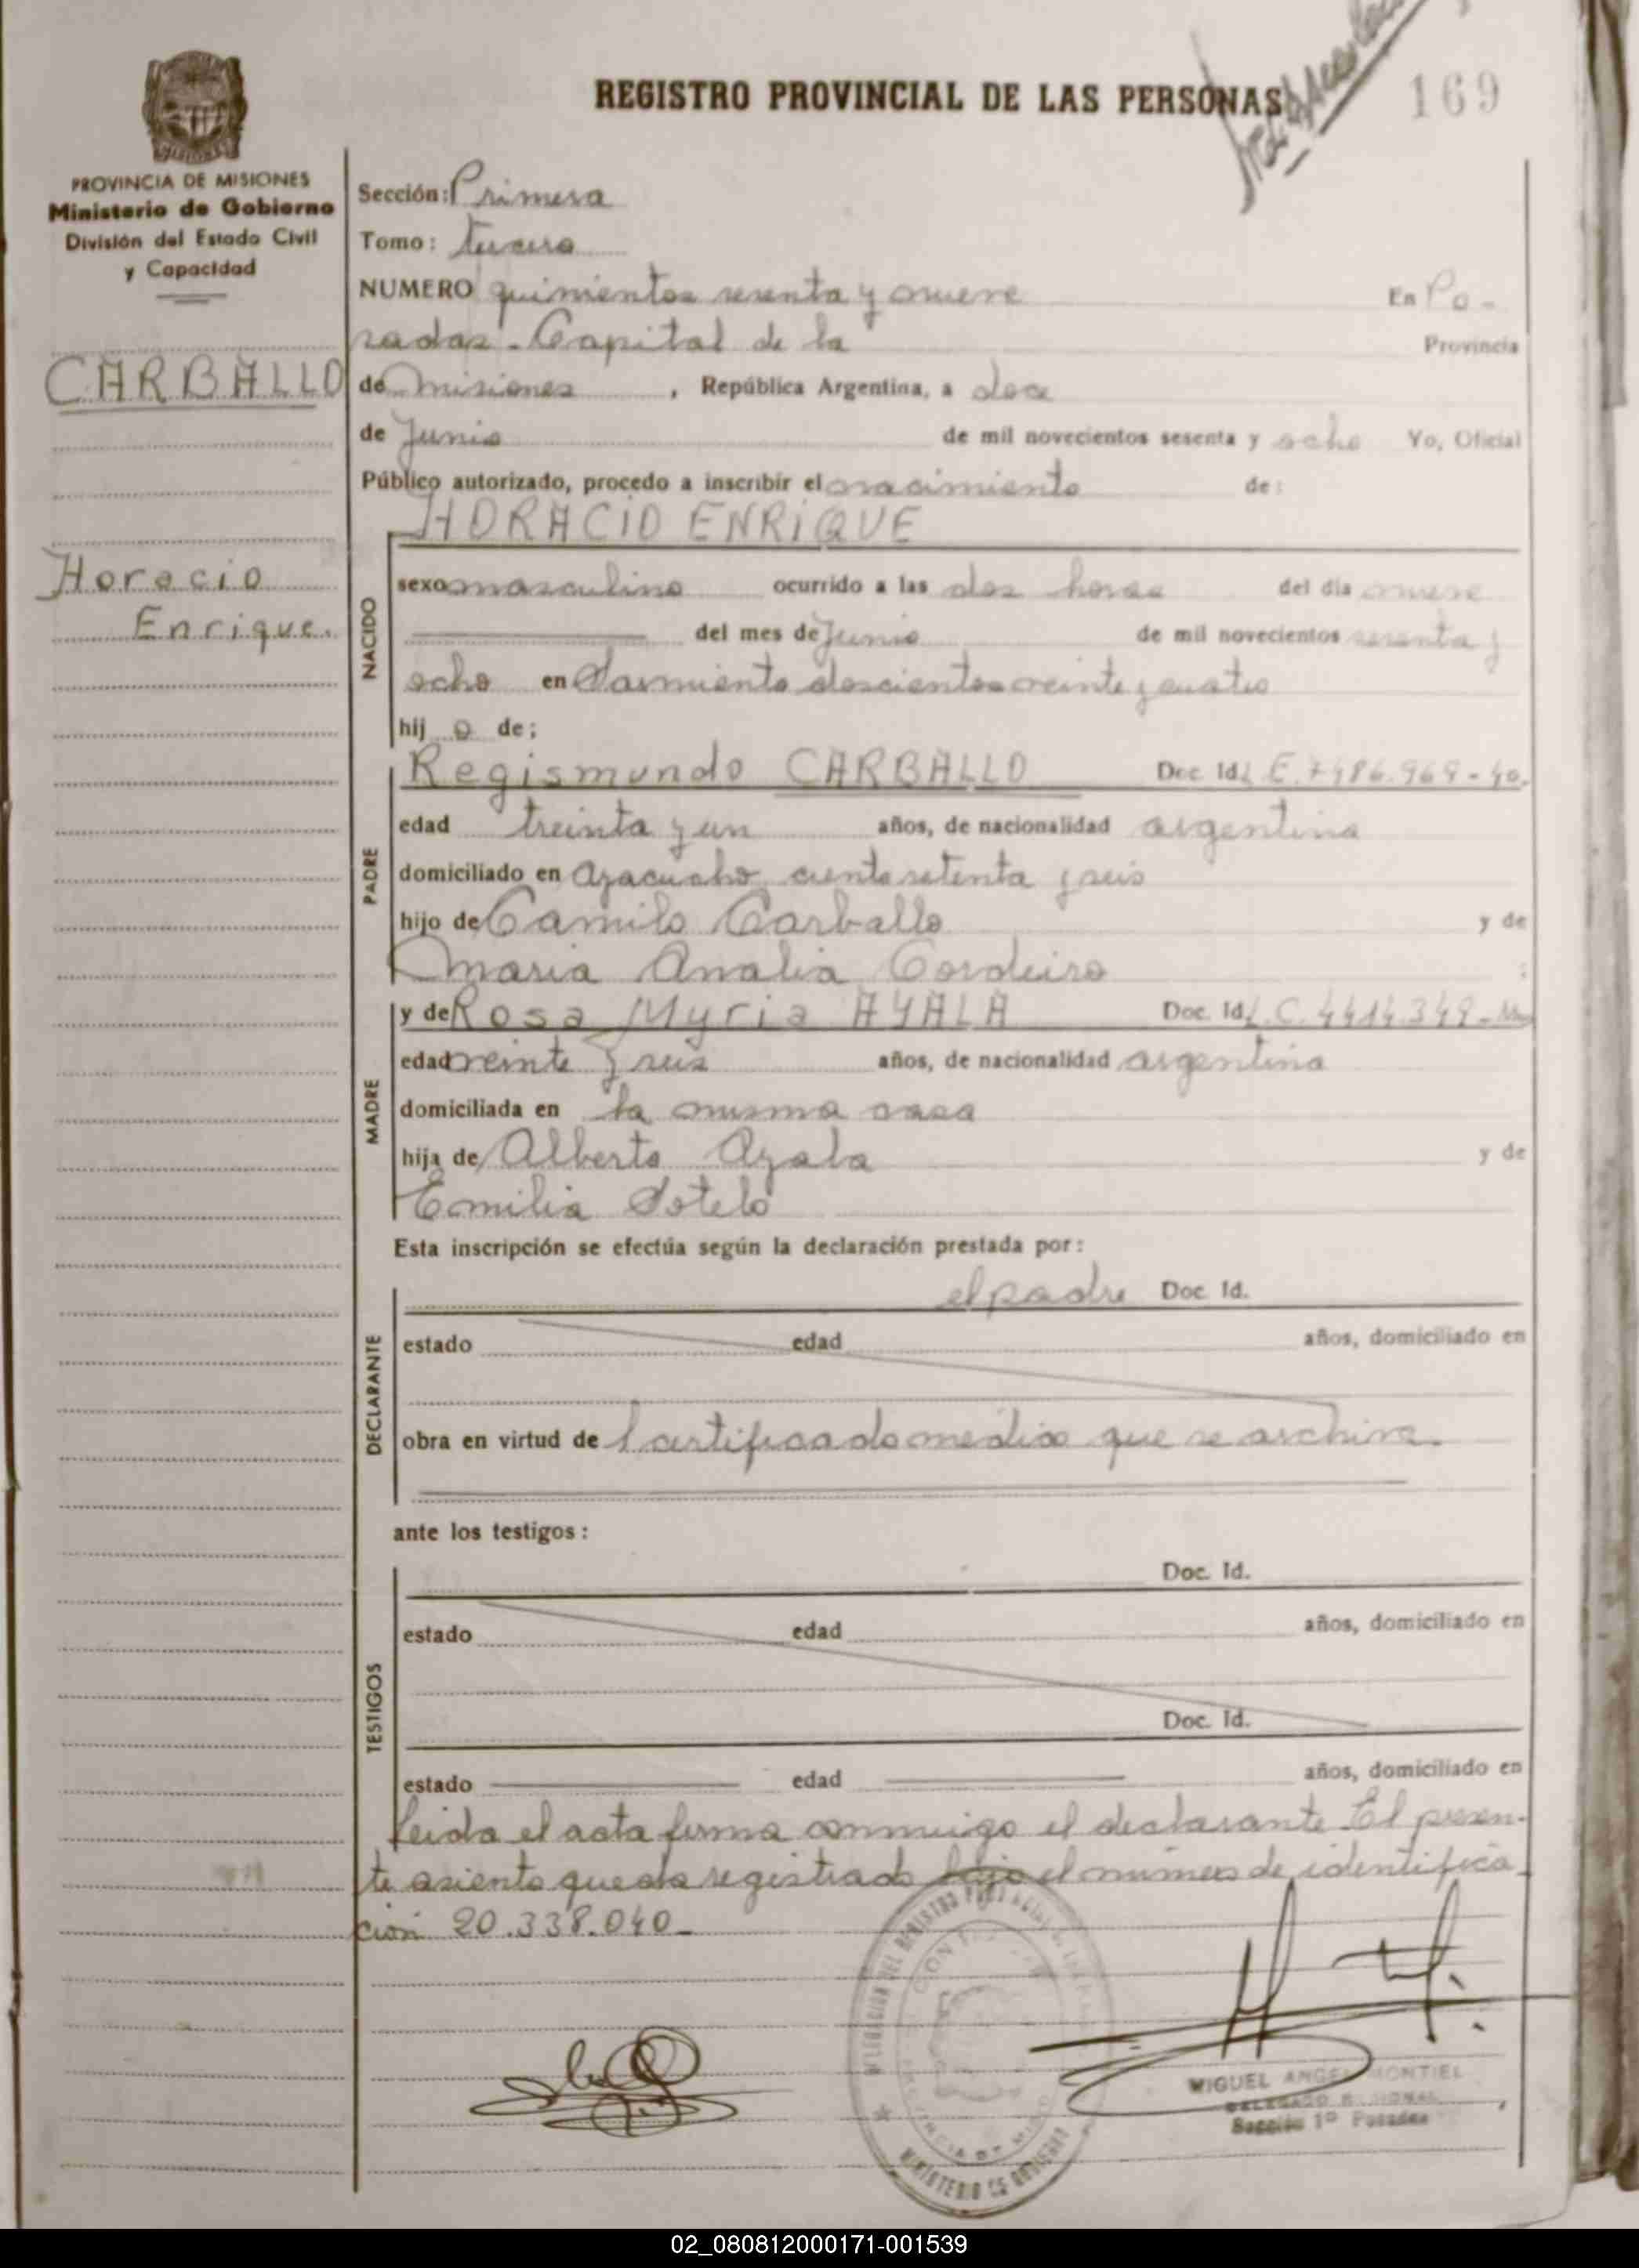 REGISTRO PROVINCIAL DE LAS PERSONAS
169
PROVINCIA DE MISIONES
Ministerio de Gobierno
División del Estado Civil
y Capacidad
Sección: Primera
Tomo: tercero
NUMERO quinientos sesenta y nueve En Po-
sadas - Capital de la Provincia
CARBALLO
de Misiones, República Argentina, a doce
de Junio de mil novecientos sesenta y ocho Yo, Oficial
Público autorizado, procedo a inscribir el nacimiento de:
HORACIO ENRIQUE
Horacio
Enrique.
NACIDO
sexo masculino ocurrido a las dos horas del día nueve
del mes de Junio de mil novecientos sesenta y
ocho en Sarmiento doscientos veinte y cuatro
hij o de;
PADRE
Regismundo CARBALLO Doc. Id. L.E. 7486.969-40.
edad treinta y un años, de nacionalidad argentina
domiciliado en Ayacucho ciento setenta y seis
hijo de Camilo Carballo y de
Maria Analia Cordeiro
MADRE
y de Rosa Myria AYALA Doc. Id. L.C. 4414.349-
edad veinte y seis años, de nacionalidad argentina
domiciliada en la misma casa
hija de Alberto Ayala y de
Emilia Sotelo
Esta inscripción se efectúa según la declaración prestada por:
DECLARANTE
el padre Doc. Id.
estado edad años, domiciliado en
obra en virtud de l certificado medico que se archiva.
ante los testigos:
TESTIGOS
Doc. Id.
estado edad años, domiciliado en
Doc. Id.
estado edad años, domiciliado en
Leida el acta firma conmigo el declarante El presen-
te asiento queda registrado bajo el número de identifica-
ción 20.338.040-
DELEGACION DEL REGISTRO
MINISTERIO DE GOBIERNO
MIGUEL ANGEL MONTIEL
DELEGADO REGIONAL
Sección 1º Posadas
02_080812000171-001539